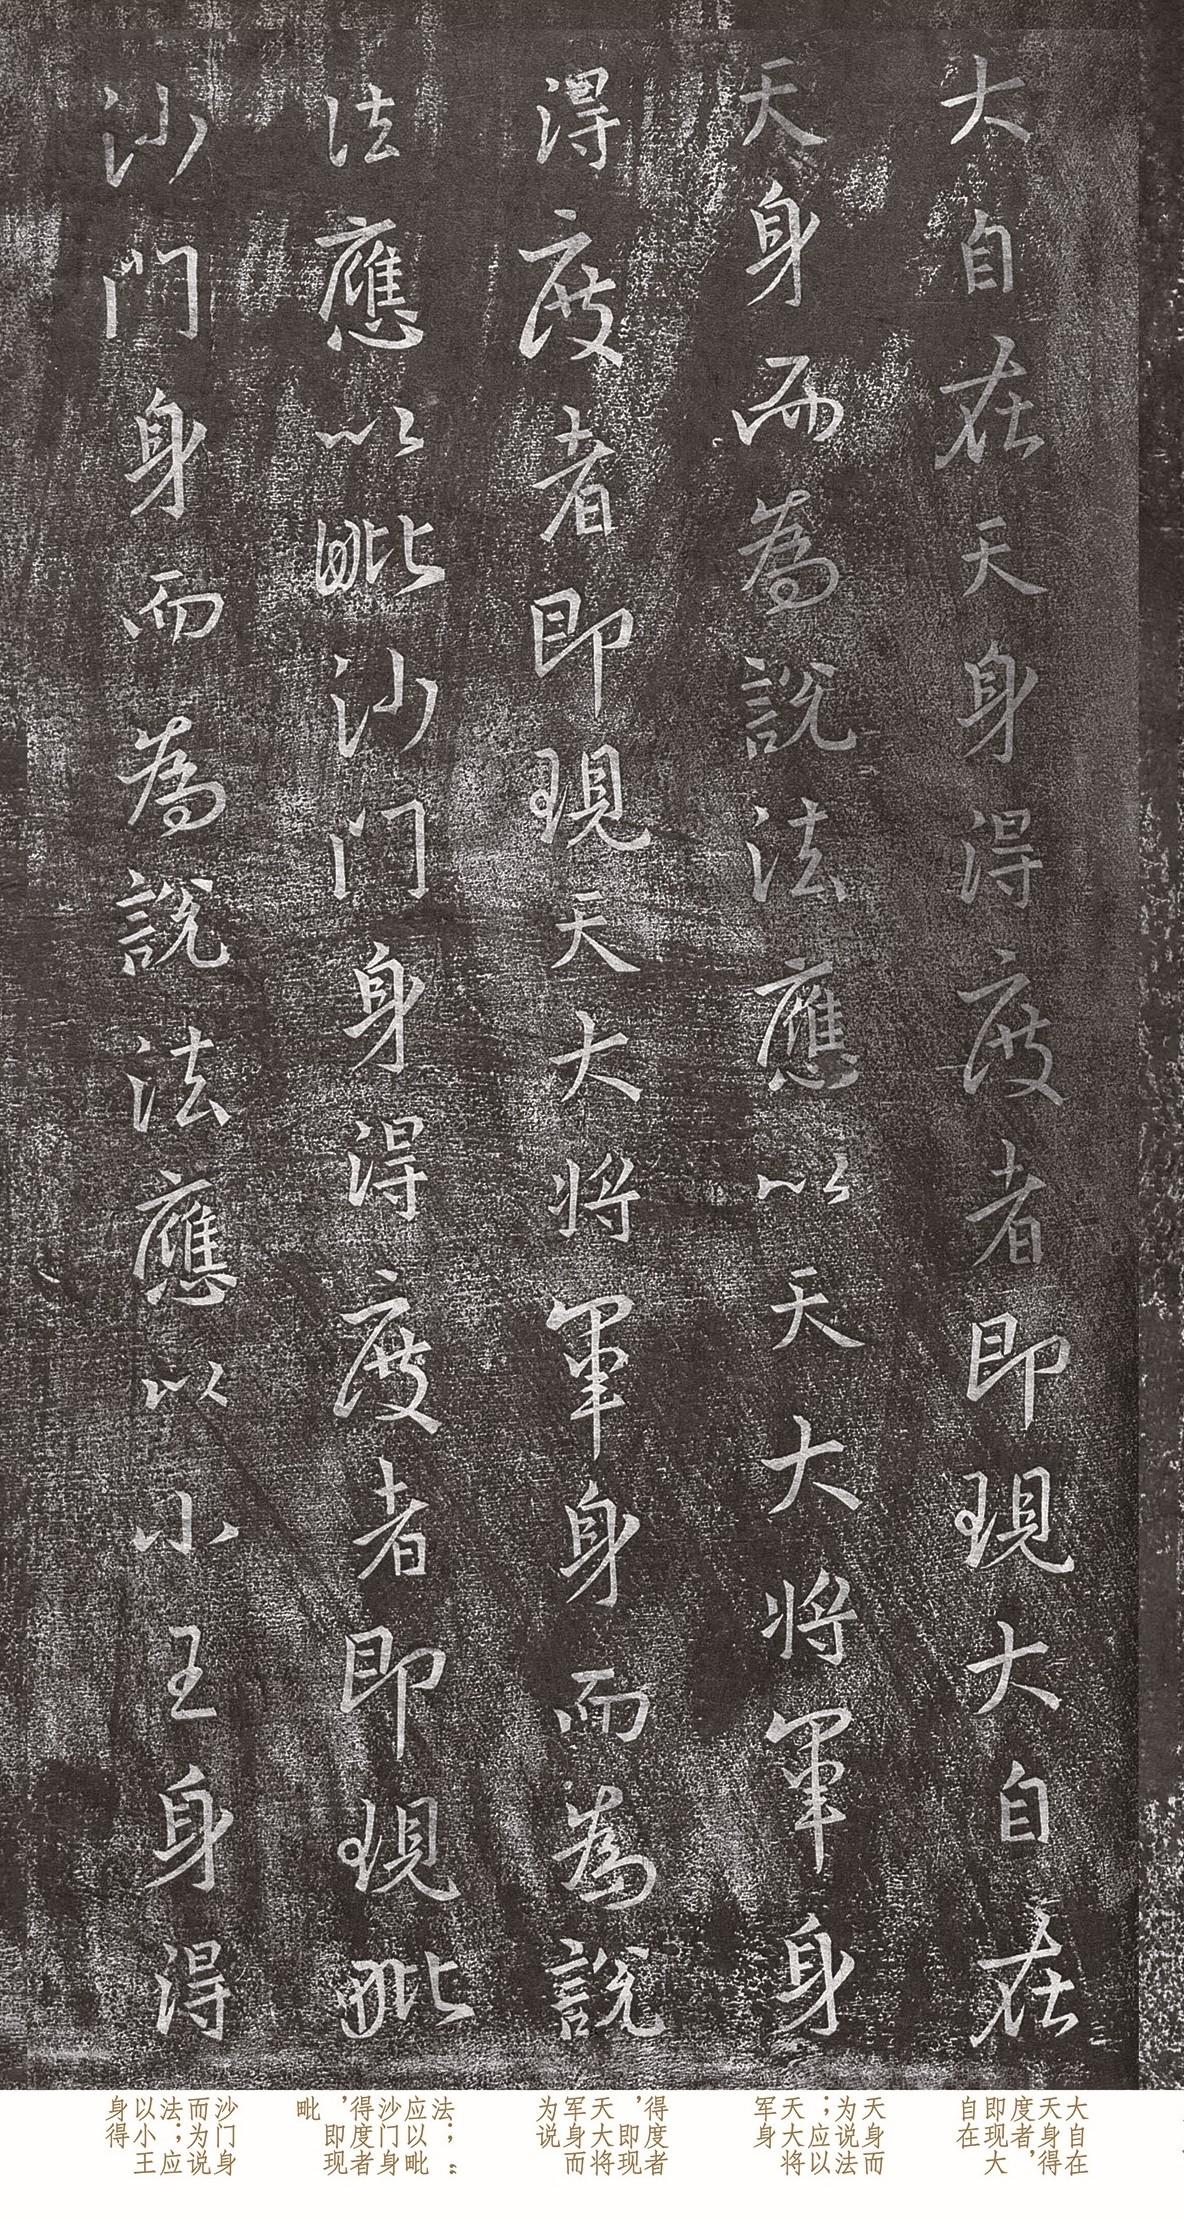 大自在天身得度者即現大自在
天身而為說法應以天大將軍身
得度者即現天大將軍身而為說
法應以毗沙門身得度者即現毗
沙門身而為說法應以小王身得
大自在
天身得
度者，
即现大
自在
天身而
为说法
；应以
天大将
军身
得度者
，即现
天大将
军身而
为说
法；
应以毗
沙门身
得度者
，即现
毗
沙门身
而为说
法；应
以小王
身得